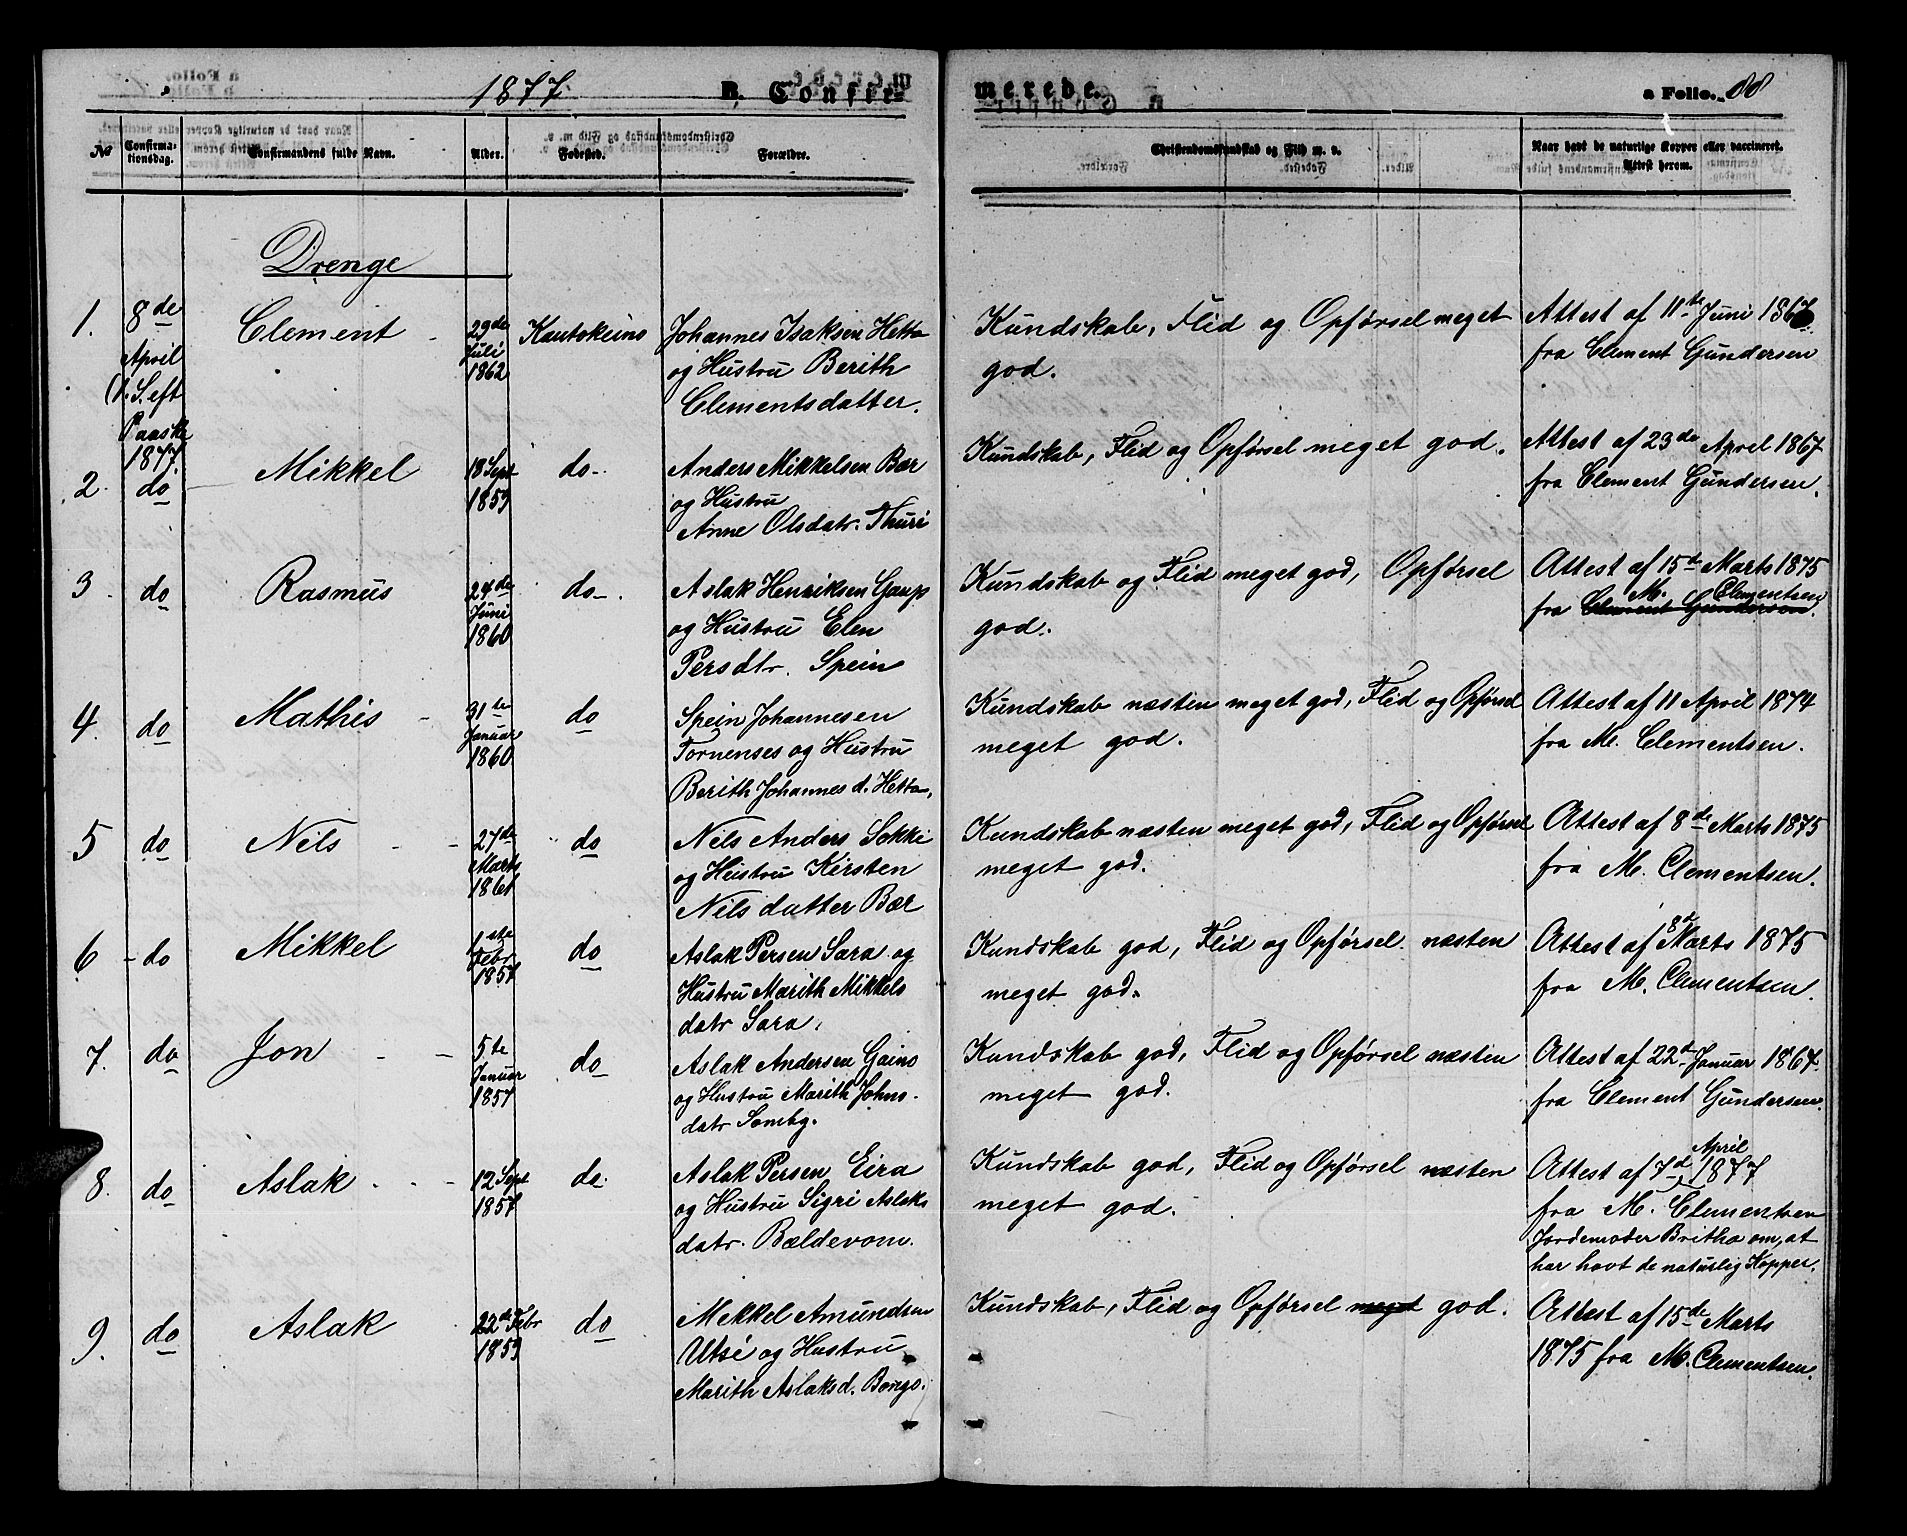 1877. B. Confirmerede. a Folio. 88
No Confirmationsdag. Confirmandens fulde Navn. Alder. Fødested. Forældre. Christendomskundskab og Flid m. v. Naar havt de naturlige Kopper eller vaccineret. Attest herom.
Drenge
1. 8de April (1. S. eft Paaske 1877. Clement 29de Juli 1862 Kautokeino
Johannes Isaksen Hetta
og Hustru Berith
Clementsdatter.
Kundskab, Flid og Opførsel meget
god.
Attest af 11te Juni 1867
fra Clement Gundersen
2. do Mikkel 18 Sept 1859 do
Anders Mikkelsen Bær
og Hustru
Anne Olsdatr. Thuri
Kundskab, Flid og Opførsel meget god.
Attest af 23de April 1867
fra Clement Gundersen.
3. do Rasmus 24de Juni 1860 do
Aslak Henriksen Gaup
og Hustru Elen
Persdtr. Spein
Kundskab og Flid meget god, Opførsel
god.
Attest af 15de Marts 1875
fra Clement Gundersen M. Clementsen
4. do Mathis 31te Januar 1860 do
Spein Johannesen
Tornenses og Hustru
Berith Johannes d. Hetta.
Kundskab næsten meget god, Flid og Opførsel
meget god.
Attest af 11 April 1874
fra M. Clementsen.
5 do Nils 27de Marts 1861 do
Nils Anders Sokki
og Hustru Kirsten
Nilsdatter Bær
Kundskab næsten meget god, Flid og Opførsel
meget god.
Attest af 8de Marts 1875
fra M. Clementsen.
6 do Mikkel 1ste Febr 1857 do
Aslak Persen Sara og
Hustru Marith Mikkels
datr Sara.
Kundskab god, Flid og Opførsel næsten
meget god.
Attest af 8d Marts 1875
fra M. Clementsen.
7. do Jon 5te Januar 1857 do
Aslak Andersen Gaino
og Hustru Marith Johns
datr Somby.
Kundskab god, Flid og Opførsel næsten
meget god.
Attest af 22d Januar 1867
fra Clement Gundersen.
8. do Aslak 12 Sept 1857 do.
Aslak Persen Eira
og Hustru Sigri Aslaks
datr. Bældevom.
Kundskab god, Flid og Opførsel næsten
meget god.
Attest af 7d April 1877
fra M. Clementsen
Jordemoder Britha om, at
har havt de naturlig Kopper.
9. do Aslak 22de Febr 1859 do
Mikkel Amundsen
Utsi og Hustru
Marith Aslaksd. Bongo.
Kundskab, Flid og Opførsel meget god.
Attest af 15de Marts
1875 fra M. Clementsen.